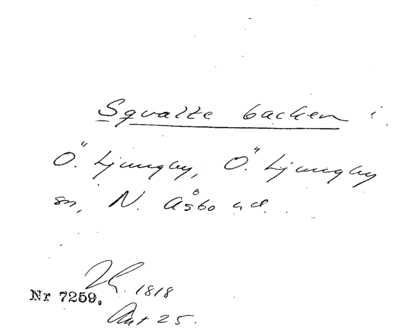 Sqvatte backen i
Ö. Ljungby, Ö. Ljungby
sn, N. Åsbo hd.
1818
Nr 7259.
Akt 25.